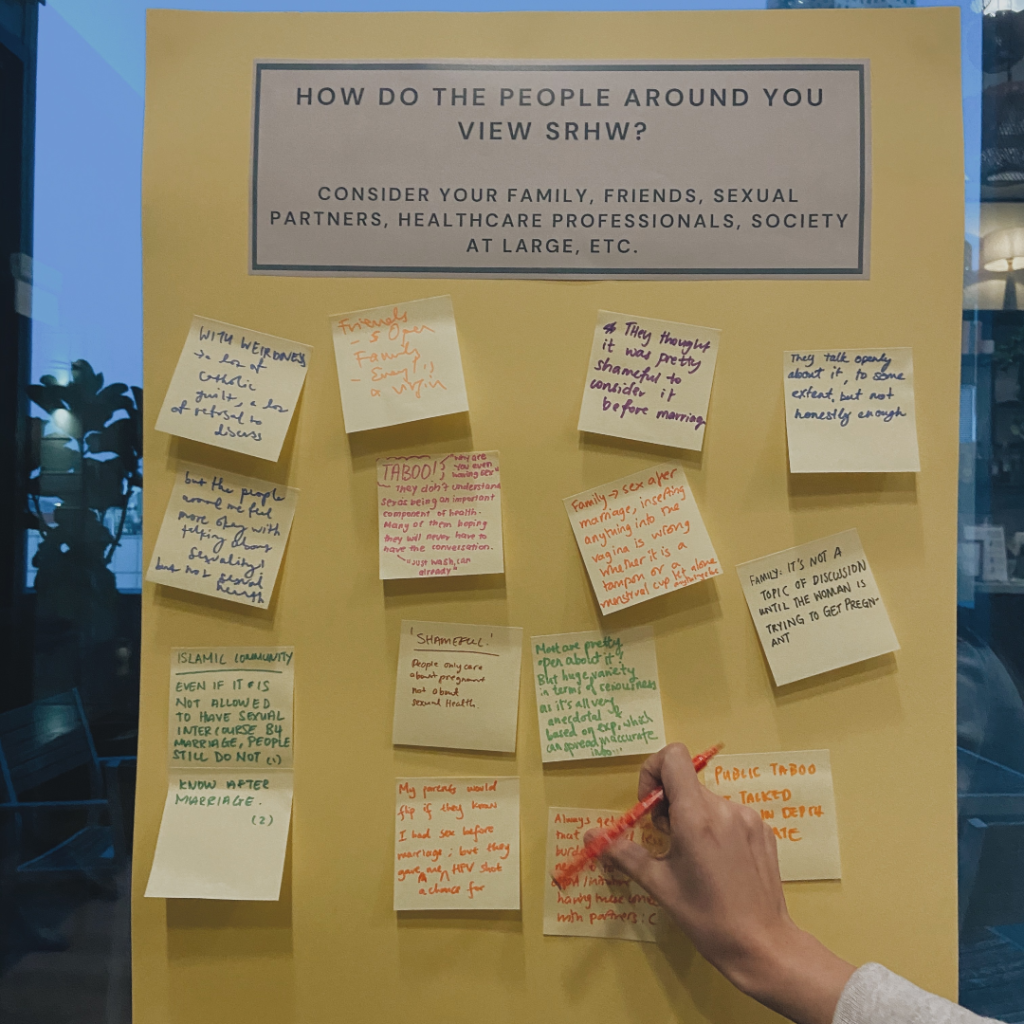 HOW DO THE PEOPLE AROUND YOU
VIEW SRHW?
CONSIDER YOUR FAMILY, FRIENDS, SEXUAL
PARTNERS, HEALTHCARE PROFESSIONALS, SOCIETY
AT LARGE, ETC.
WITH WEIRDNESS
→ a lot of
catholic
guilt, a lot
of refusal to
discuss
Friends
- Open
Family
- Every1 is
a virgin
They thought
it was pretty
shameful to
consider it
before marriage
They talk openly
about it, to some
extent, but not
honestly enough
but the people
around me feel
more okay with
talking about
sexuality,
but not sexual
health
TABOO!
"why are
you even
having sex"
They don't understand
sex as being an important
component of health.
Many of them hoping
they will never have to
have the conversation.
"Just wash, can
already"
Family → sex after
marriage, inserting
anything into the
vagina is wrong
whether it is a
tampon or a
menstrual cup let alone
FAMILY: IT'S NOT A
TOPIC OF DISCUSSION
UNTIL THE WOMAN IS
TRYING TO GET PREGN-
ANT
ISLAMIC COMMUNITY
EVEN IF IT IS
NOT ALLOWED
TO HAVE SEXUAL
INTERCOURSE B4
MARRIAGE, PEOPLE
STILL DO NOT (1)
KNOW AFTER
MARRIAGE.
(2)
'SHAMEFUL.'
People only care
about pregnant
not about
sexual health.
Most are pretty
open about it!
But huge variety
in terms of seriousness
as it's all very
anecdotal &
based on exp, which
can spread inaccurate
info...
My parents would
flip if they knew
I had sex before
marriage; but they
gave me HPV shot
a chance for
Always
that less
burd
having these
with partners :(
PUBLIC TABOO
TALKED
IN DEPTH